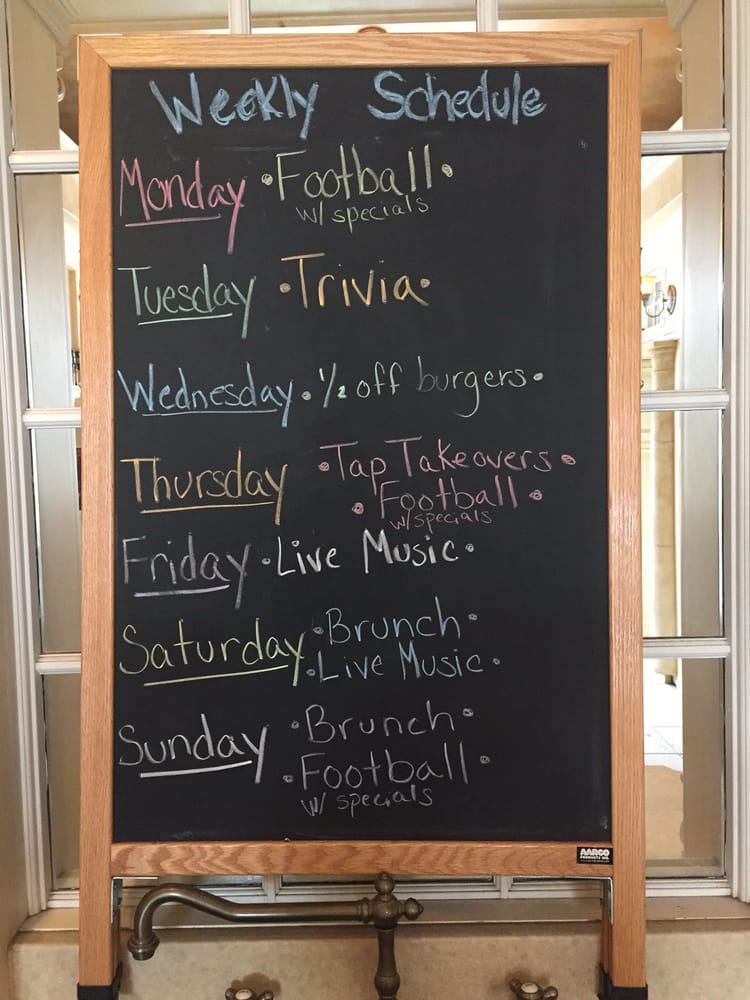 Weekly Schedule
Monday • Football •
w/ specials
Tuesday • Trivia •
Wednesday • 1/2 off burgers •
Thursday • Tap Takeovers •
• Football •
w/ specials
Friday • Live Music •
Saturday • Brunch •
• Live Music •
Sunday • Brunch •
• Football •
w/ specials
AARCO
PRODUCTS INC.